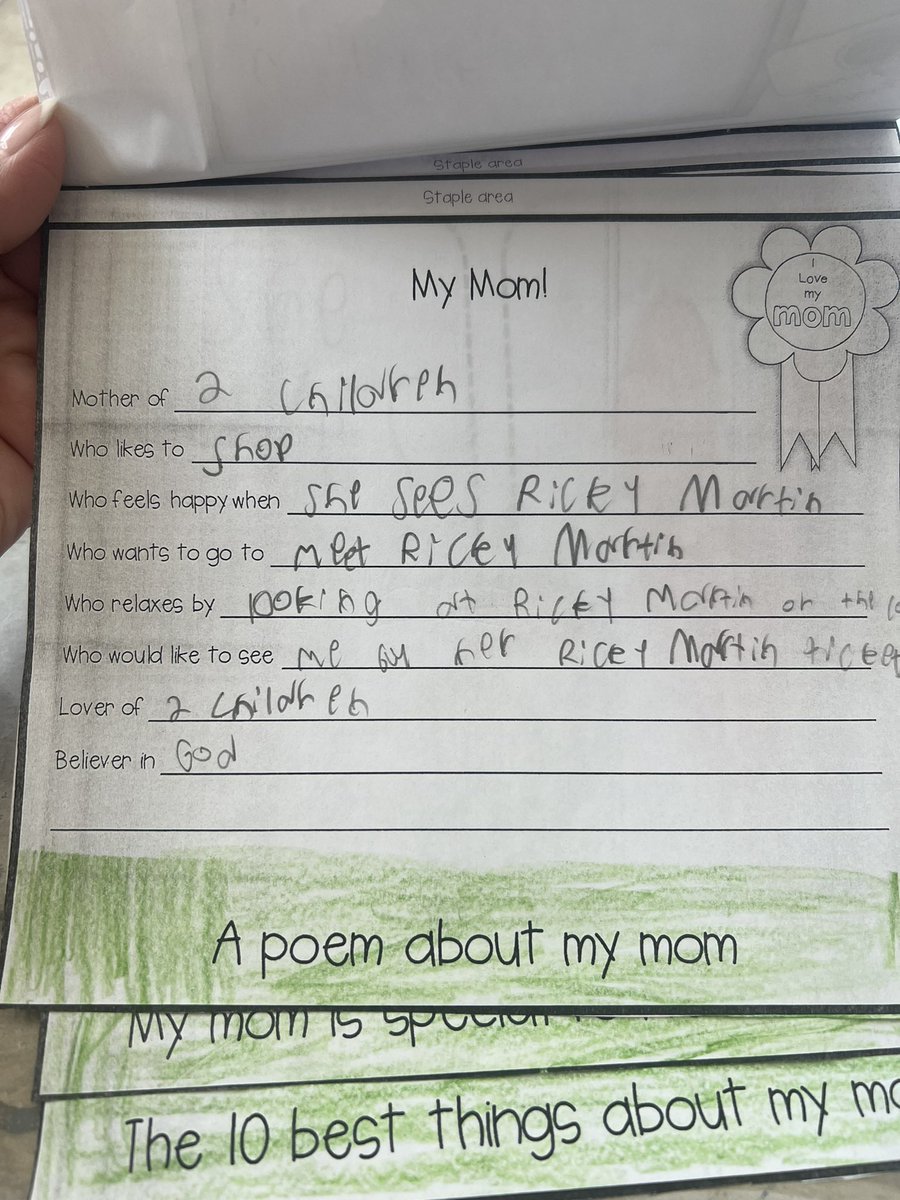 Staple area
Staple area
My Mom!
I
Love
my
mom
Mother of 2 children
Who likes to shop
Who feels happy when she sees Ricky Martin
Who wants to go to meet Ricky Martin
Who relaxes by looking at Ricky Martin on the
Who would like to see me buy her Ricey Martin ticket
Lover of 2 children
Believer in God
A poem about my mom
My mom is special
The 10 best things about my